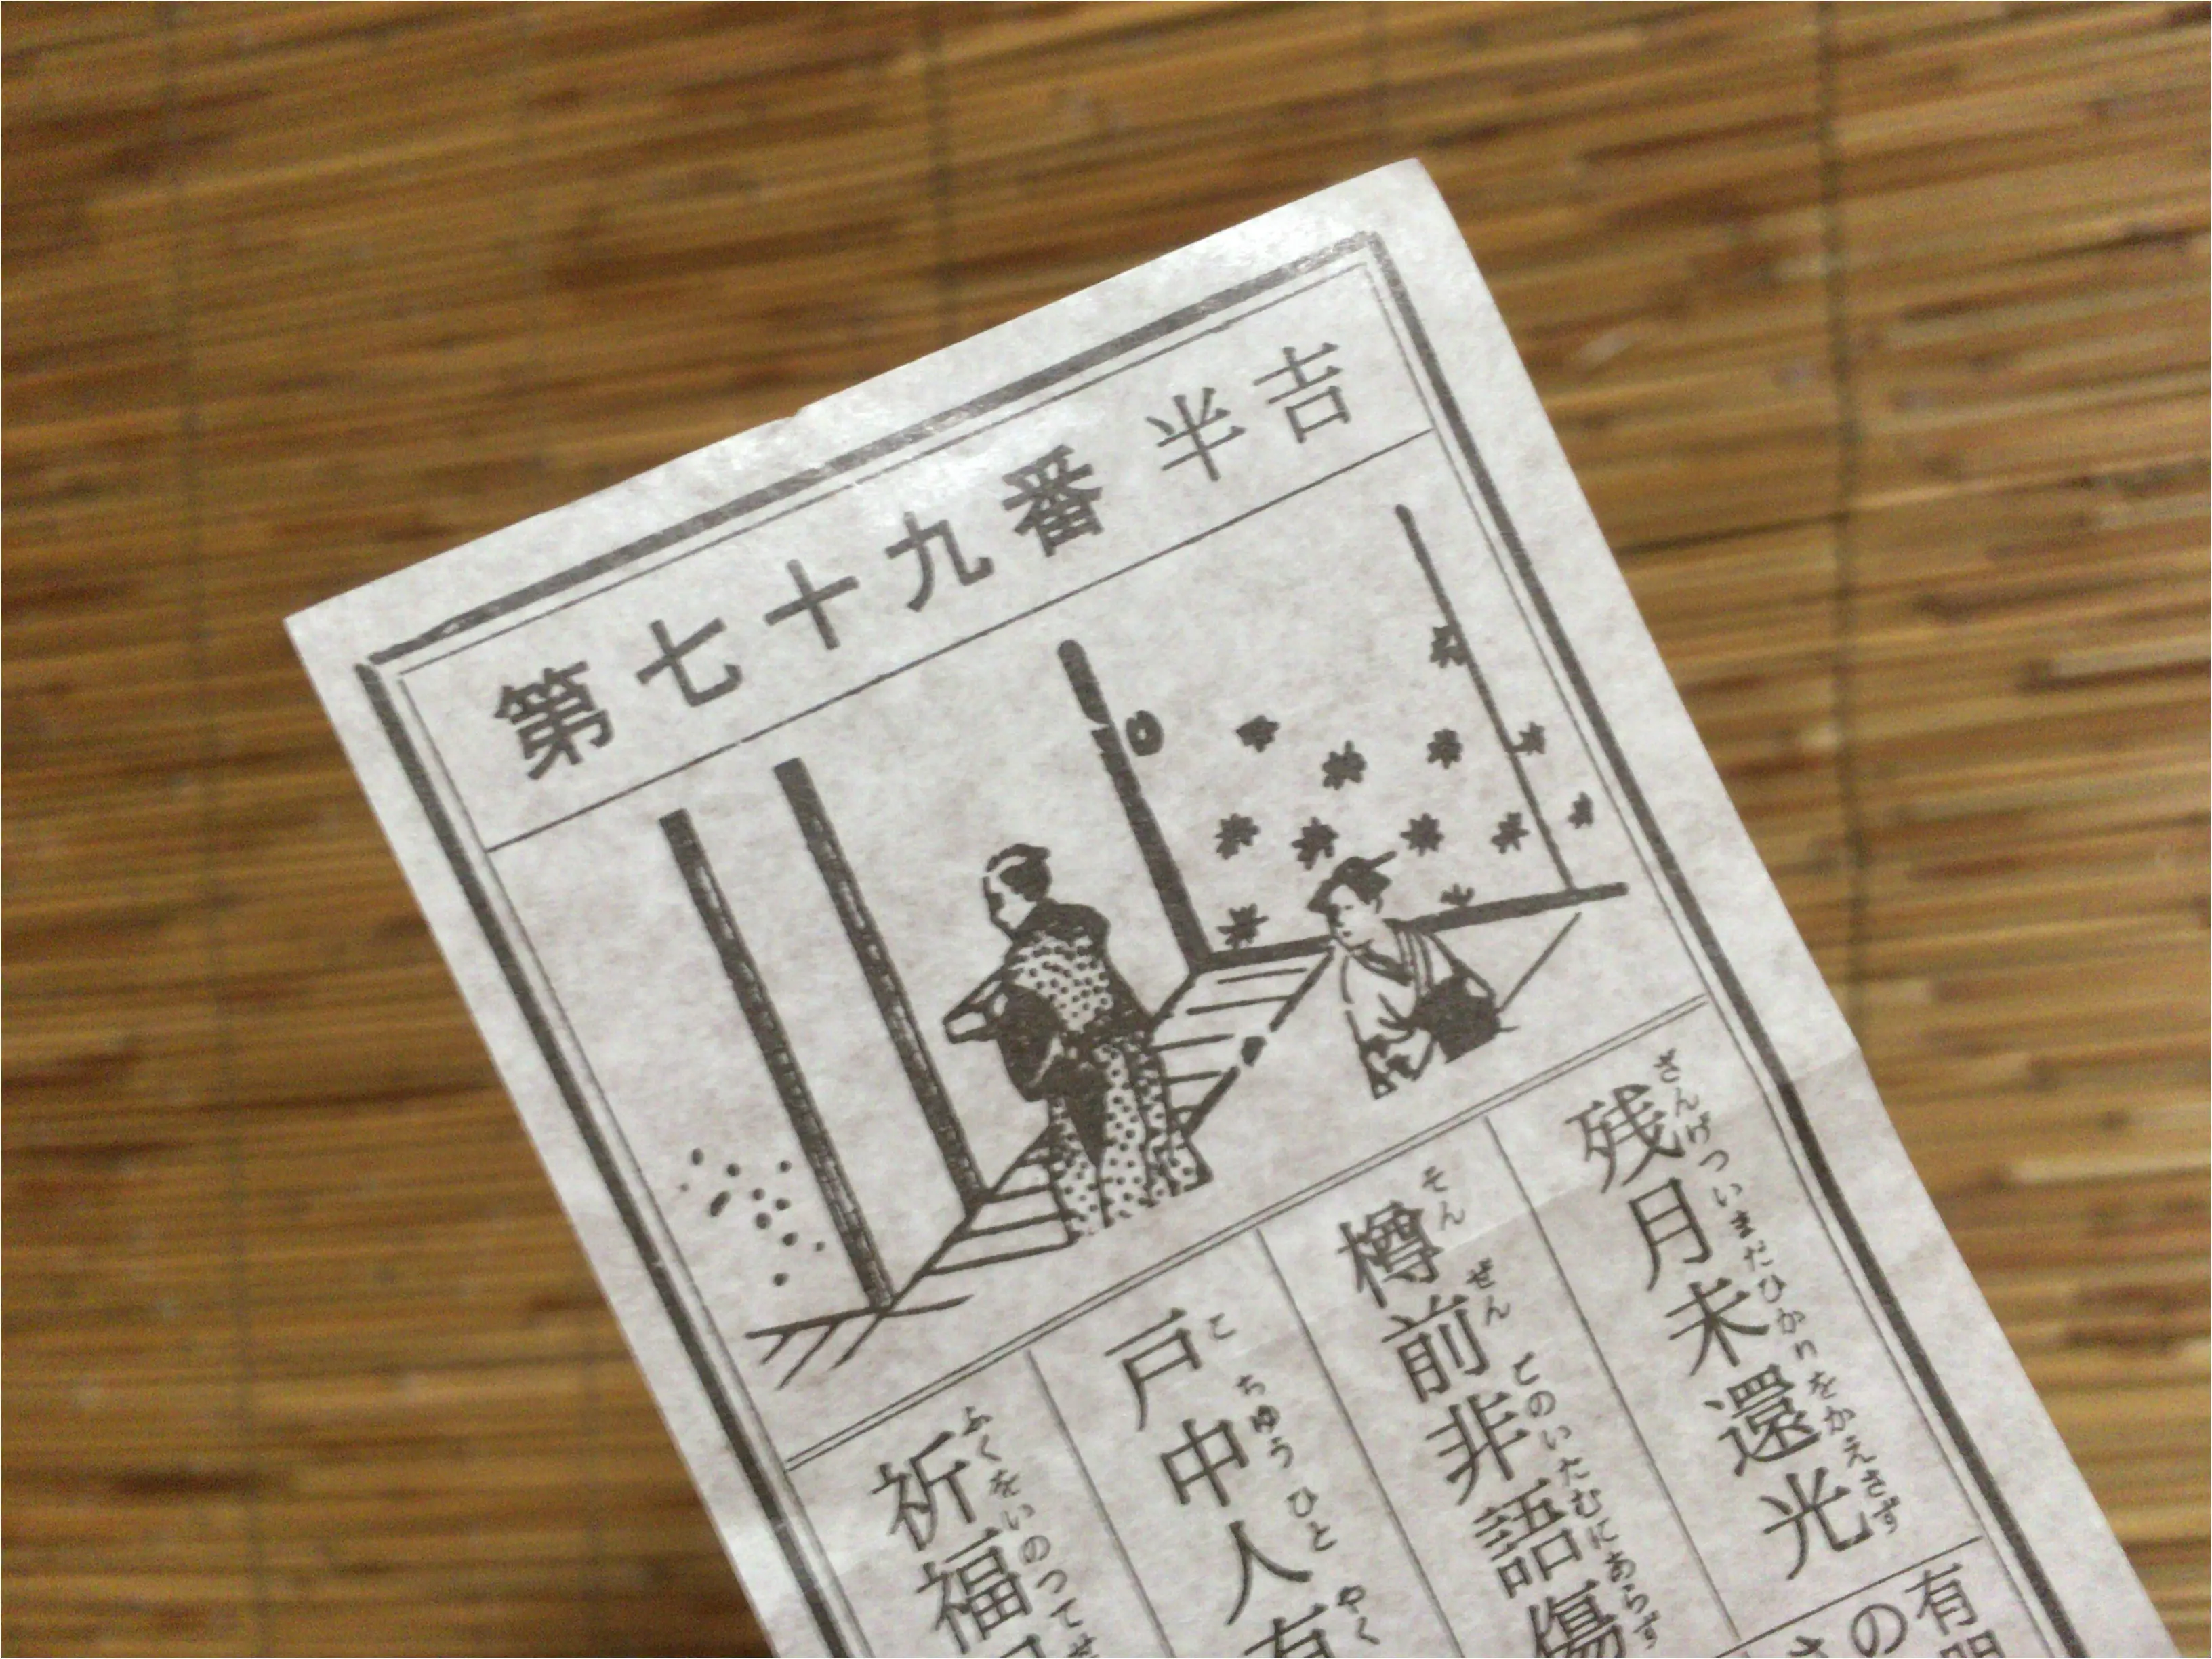 第七十九番 半吉
残月未還光
ざんげついまだひかりをかえさず
樽前非語傷
そんぜんとのいたむにあらず
戸中人有
こちゅうひとやく
祈福
ふくをいのつてせ
有
の